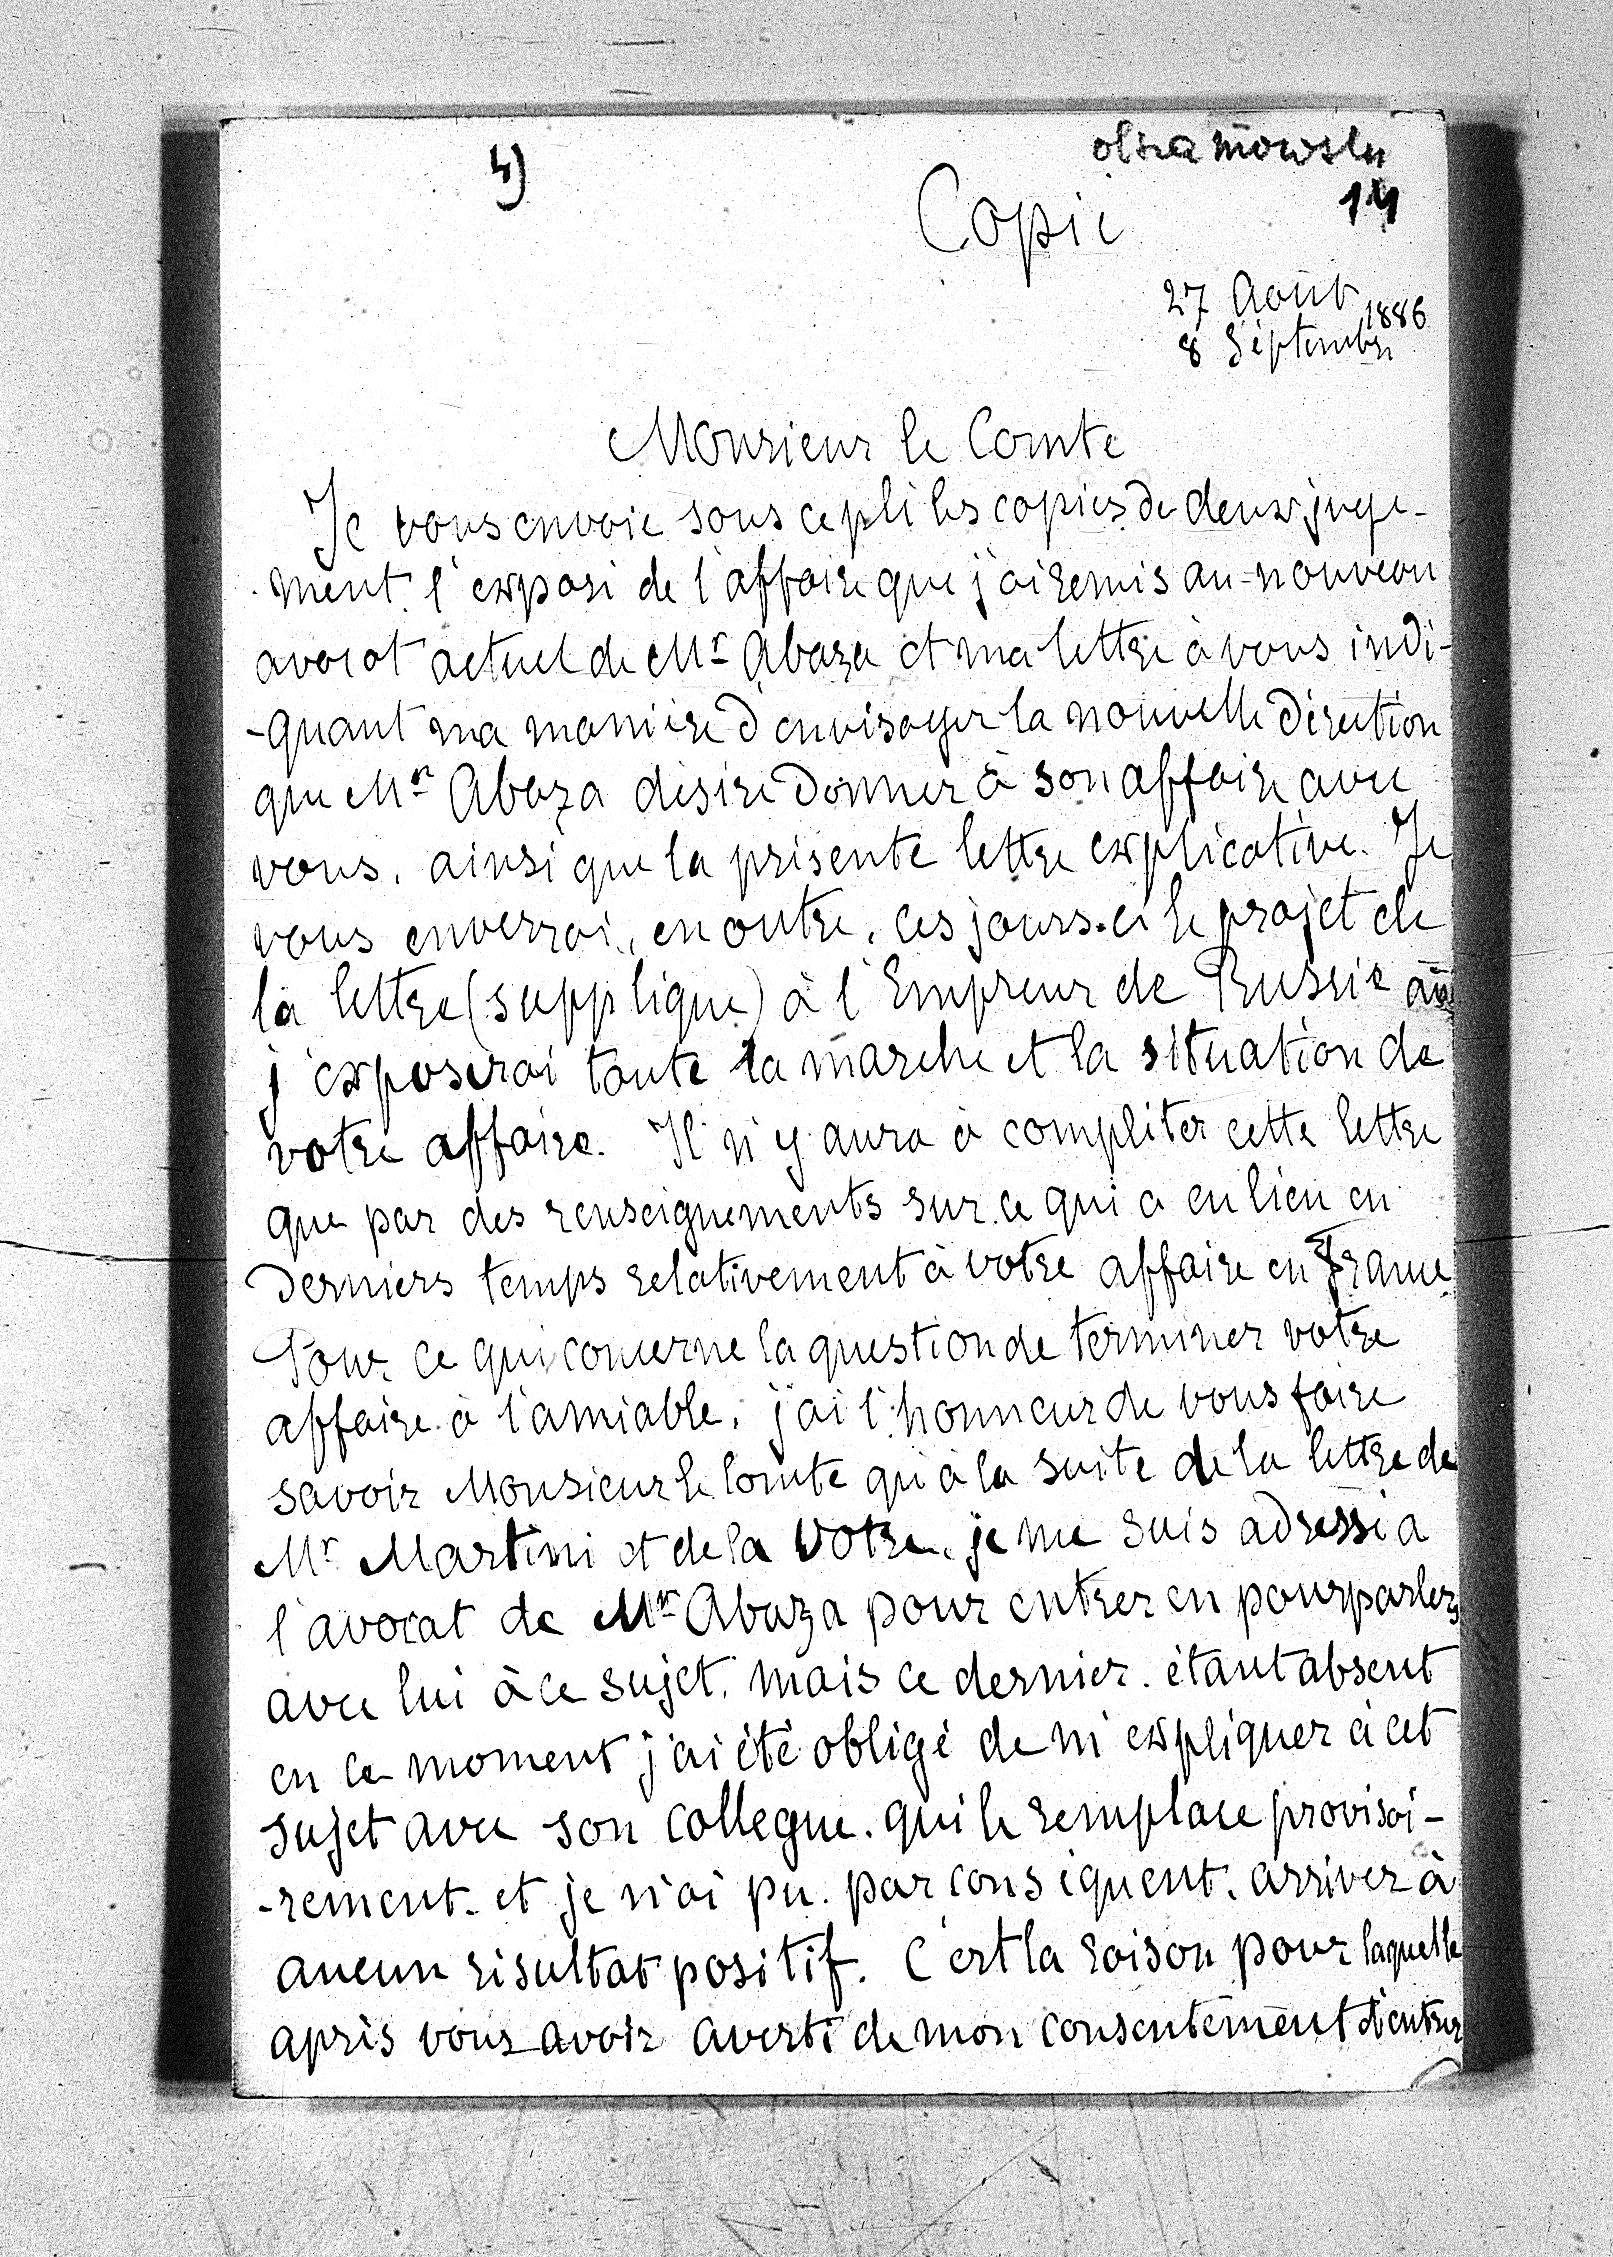 4)
14
Copie
27 Août
1886
8 Septembre
Monsieur le Comte
Je vous envoie sous ce pli les copies de deux juge-
ment. l'exposé de l'affaire que j'ai remis au nouveau
avocat actuel de Mr Abaza et ma lettre à vous indi-
-quant ma manière d'envisager la nouvelle direction
que Mr Abaza désire donner à son affaire avec
vous, ainsi que la présente lettre explicative. Je
vous enverrai, en outre, ces jours-ci le projet de
la lettre (supplique) à l'Empreur de Russie où
j'exposerai toute la marche et la situation de
votre affaire. Il n'y aura à compléter cette lettre
que par des renseignements sur ce qui a eu lieu en
derniers temps relativement à votre affaire en France
Pour ce qui concerne la question de terminer votre
affaire à l'amiable, j'ai l'honneur de vous faire
savoir Monsieur le Comte qu'à la suite de la lettre de
Mr Martini et de la Votre, je me suis adressé a
l'avocat de Mr Abaza pour entrer en pourparlers
avec lui à ce sujet, mais ce dernier, étant absent
en ce moment j'ai été obligé de m'expliquer à cet
sujet avec son collegue, qui le remplace provisoi-
-rement, et je n'ai pu, par conséquent, arriver à
aucun résultat positif. C'est la raison pour laquelle
après vous avoir averti de mon consentement d'entrer